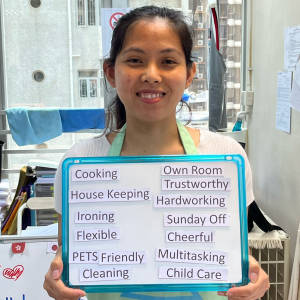 Cooking
Own Room
Trustworthy
House Keeping
Hardworking
Ironing
Sunday Off
Flexible
Cheerful
PETS Friendly
Multitasking
Cleaning
Child Care